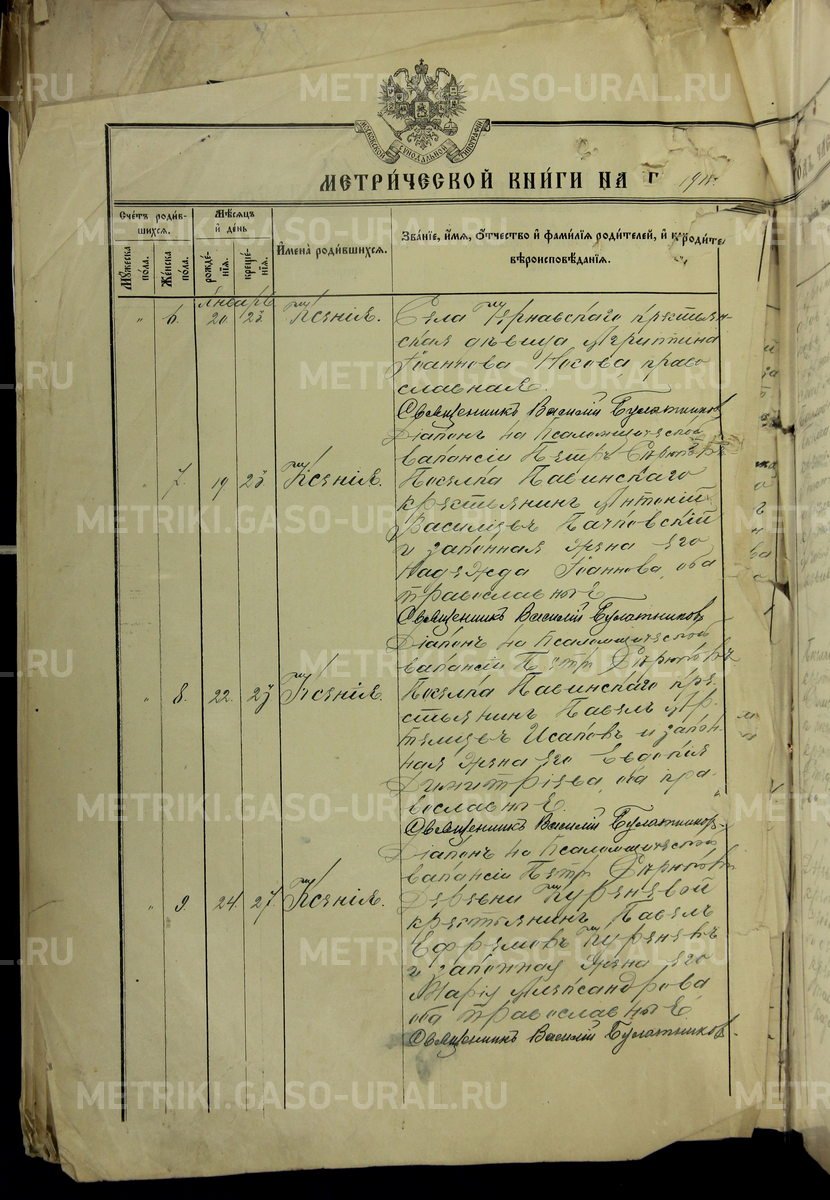 МОСКОВСКОЙ СѴНОДАЛЬНОЙ ТИПОГРАФІИ
МЕТРИ́ЧЕСКОЙ КНИ́ГИ НА Г
Сче́тъ роди́в-
шихся.
Мꙋ́жеска по́ла.
Же́нска по́ла.
Мѣ́сяцъ
и҆ день
рожде́-
нія.
креще́-
нія.
И҆мена̀ роди́вшихся.
Зва́ніе, и҆́мя, ѻ҆́тчество и҆ фами́лія роди́телей, и҆
вѣроисповѣ́данія.
Январь
" 6. 20 23 Ксенія.
Села
ская дѣвица Агриппина
Іоаннова Носова право
славная.
Священникъ Василій Булатников
Діаконъ на Псаломщической
вакансіи Петръ
" 7. 19 23 Ксенія.
Поселка Павинскаго
крестьянинъ Антоній
Василіевъ Пачковскій
и законная жена его
Надежда Іоаннова, оба
православные
Священникъ Василій Булатников
Діаконъ на Псаломщической
вакансіи Петр
" 8. 22. 23 Ксенія.
Поселка Павинскаго кре
стьянинъ Павелъ
Исаковъ и закон
ная жена его Евдокія
Димитріева, оба пра-
вославные.
Священникъ Василій Булатников
Діаконъ на Псаломщической
вакансіи Петр
" 9. 24. 27. Ксенія.
Деревни Куреневой
крестьянинъ Павелъ
Ефремовъ Куреневъ
и законная жена его
Марія Александрова
оба православные.
Священникъ Василій Булатников.
METRIKI.GASO-URAL.RU